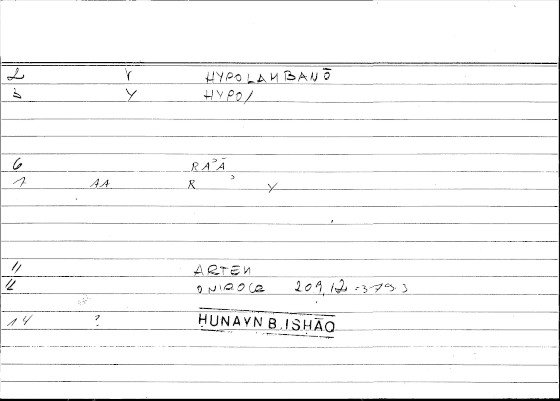 2 V HYPOLAMBANŌ
3 Y HYPO/
6 RAʾĀ
7 AA R ʾ Y
11 ARTEM
12 ONIROCR 209,12 = 379.3
14 ? HUNAYN B. ISHĀQ